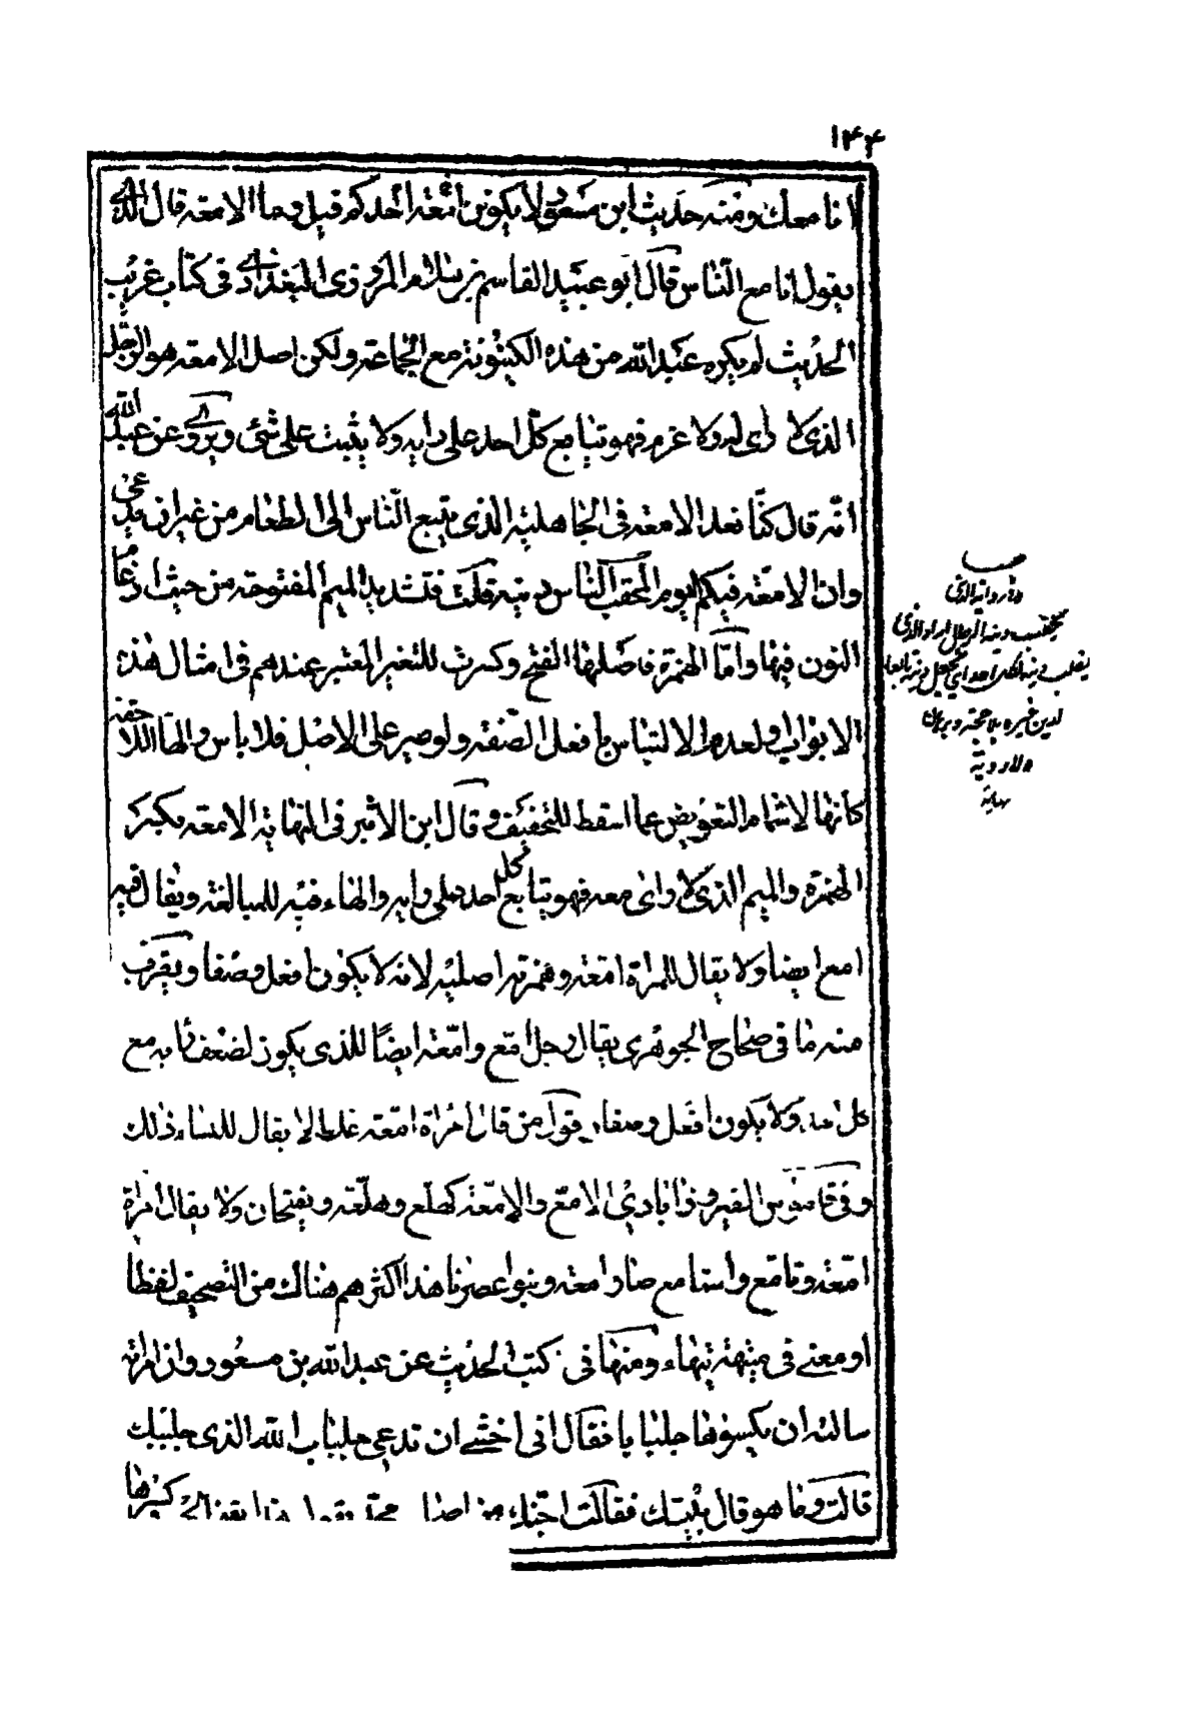 ۱۴۴
انا معك ومنه حديث ابن مسعود لا يكونن امّعة احدكم قيل وما الامعة قال الذى
يقول انا مع النّاس قال ابو عبيد القاسم بن سلام المروزى البغدادى فى كتاب غريب
الحديث لم يكره عبد الله من هذه الكينونة مع الجماعة ولكن اصل الامعة هو الرّجل
الذى لا راى له ولا عزم فهو يتابع كلّ احد على رايه ولا يثبت على شئ ويروى عن عبد الله
انّه قال كنّا نعد الامعة فى الجاهلية الذى يتبع النّاس الى الطعام من غير ان يدعى
وان الامّعة فيكم اليوم المحقب النّاس دينه قلت فتشديد الميم المفتوحة من حيث ادغام
النون فيها وامّا الهمزة فاصلها الفتح وكسرت للتغير المعتبر عندهم فى امثال هذه
الابواب ولعدم الالتباس بافعل الصّفة ولو صير على الاصل فلا باس والهاء اللاحقة
كانها لاشمام التعويض عما اسقط للتخفيف وقال ابن الاثير فى النهاية الامعة بكسر
الهمزة والميم الذى لا راى معه فهو يتابع كل احد على رايه والهاء فيه للمبالغة ويقال فيه
امع ايضا ولا يقال للمراة امعة وهمزته اصلية لانه لا يكون افعل وصفا ويقرب
منه ما فى صحاح الجوهرى يقال رجل امّع وامّعة ايضًا للذى يكون لضعف رأيه مع
كل احد ولا يكون افعل وصفا قول من قال امراة امّعة غلط لا يقال للنساء ذلك
وفى قاموس الفيروزابادى الامّع والامّعة كهلّع وهلّعة ويفتحان ولا يقال امراة
امّعة وتامّع واستامع صار امعة وبنو اعصرنا هذا اكثرهم هنالك من التصحيف لفظا
او معنى فى ميهة تيهاء ومنها فى كتب الحديث عن عبد الله بن مسعود وان امراته
سالته ان يكسوها جلبابا فقال انى اخشى ان تدعى جلباب الله الذى جلببك
قالت وما هو قال بيتك فقالت اجنّك من اصحاب محمّد تقول هذا
دينه الرجل اراد الذى